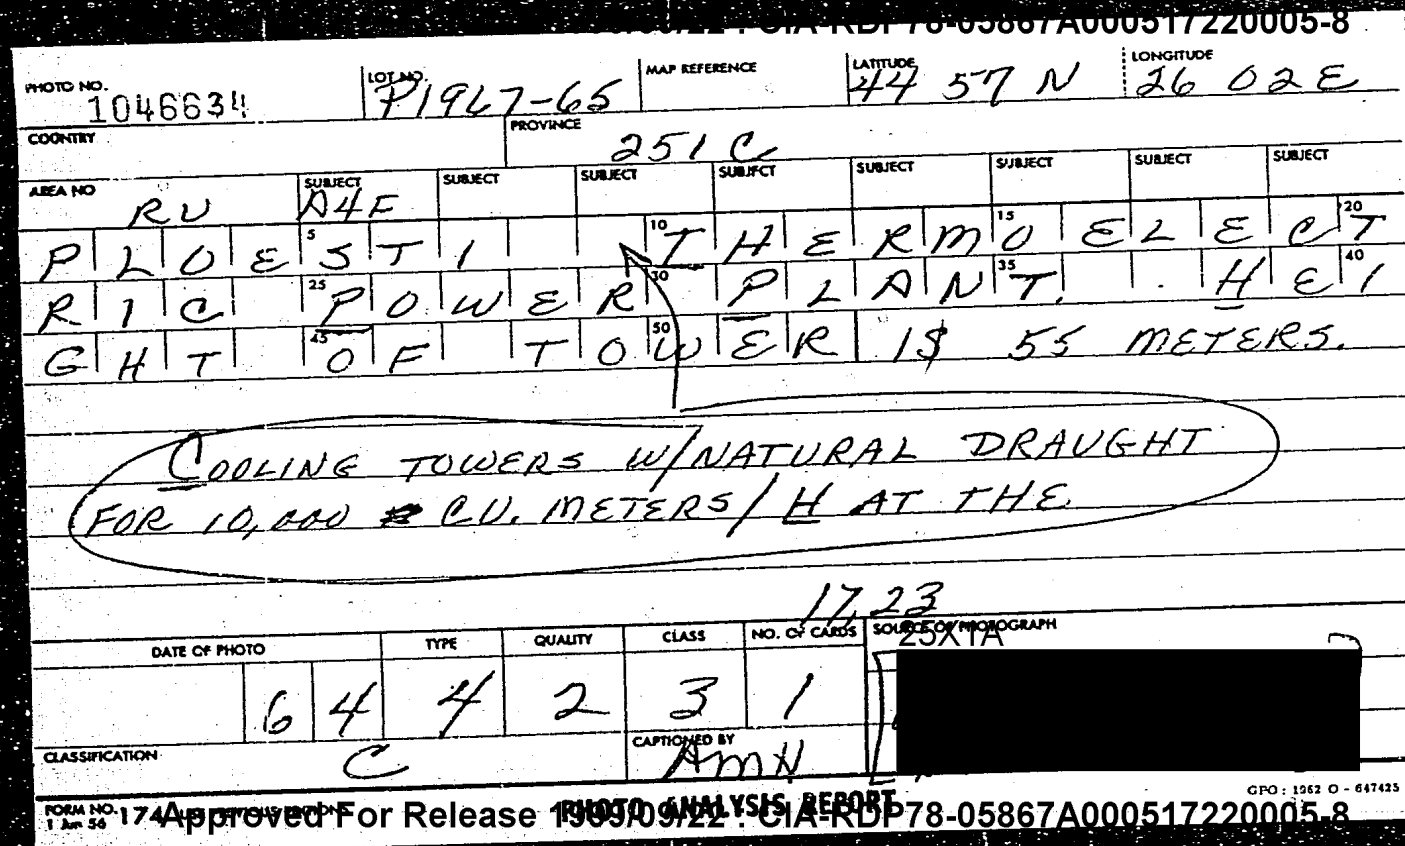 CIA-RDP78-05867A000517220005-8
PHOTO NO. LOT NO. MAP REFERENCE LATITUDE LONGITUDE
1046634 P1967-65 44 57 N 26 02 E
COUNTRY PROVINCE
251 C
AREA NO SUBJECT SUBJECT SUBJECT SUBJECT SUBJECT SUBJECT SUBJECT SUBJECT
RU A4F
5 10 15 20
PLOESTI THERMOELECT
25 30 35 40
RIC POWER PLANT. HEI
45 50
GHT OF TOWER IS 55 METERS.
COOLING TOWERS W/NATURAL DRAUGHT
FOR 10,000 CU. METERS/H AT THE
17, 23
DATE OF PHOTO TYPE QUALITY CLASS NO. OF CARDS SOURCE OF PHOTOGRAPH
25X1A
6 4 4 2 3 1
CLASSIFICATION C CAPTIONED BY AMH
GPO : 1962 O - 647425
FORM NO. 174 PHOTO ANALYSIS REPORT
1 Jun 56
Approved For Release 1999/09/22 : CIA-RDP78-05867A000517220005-8